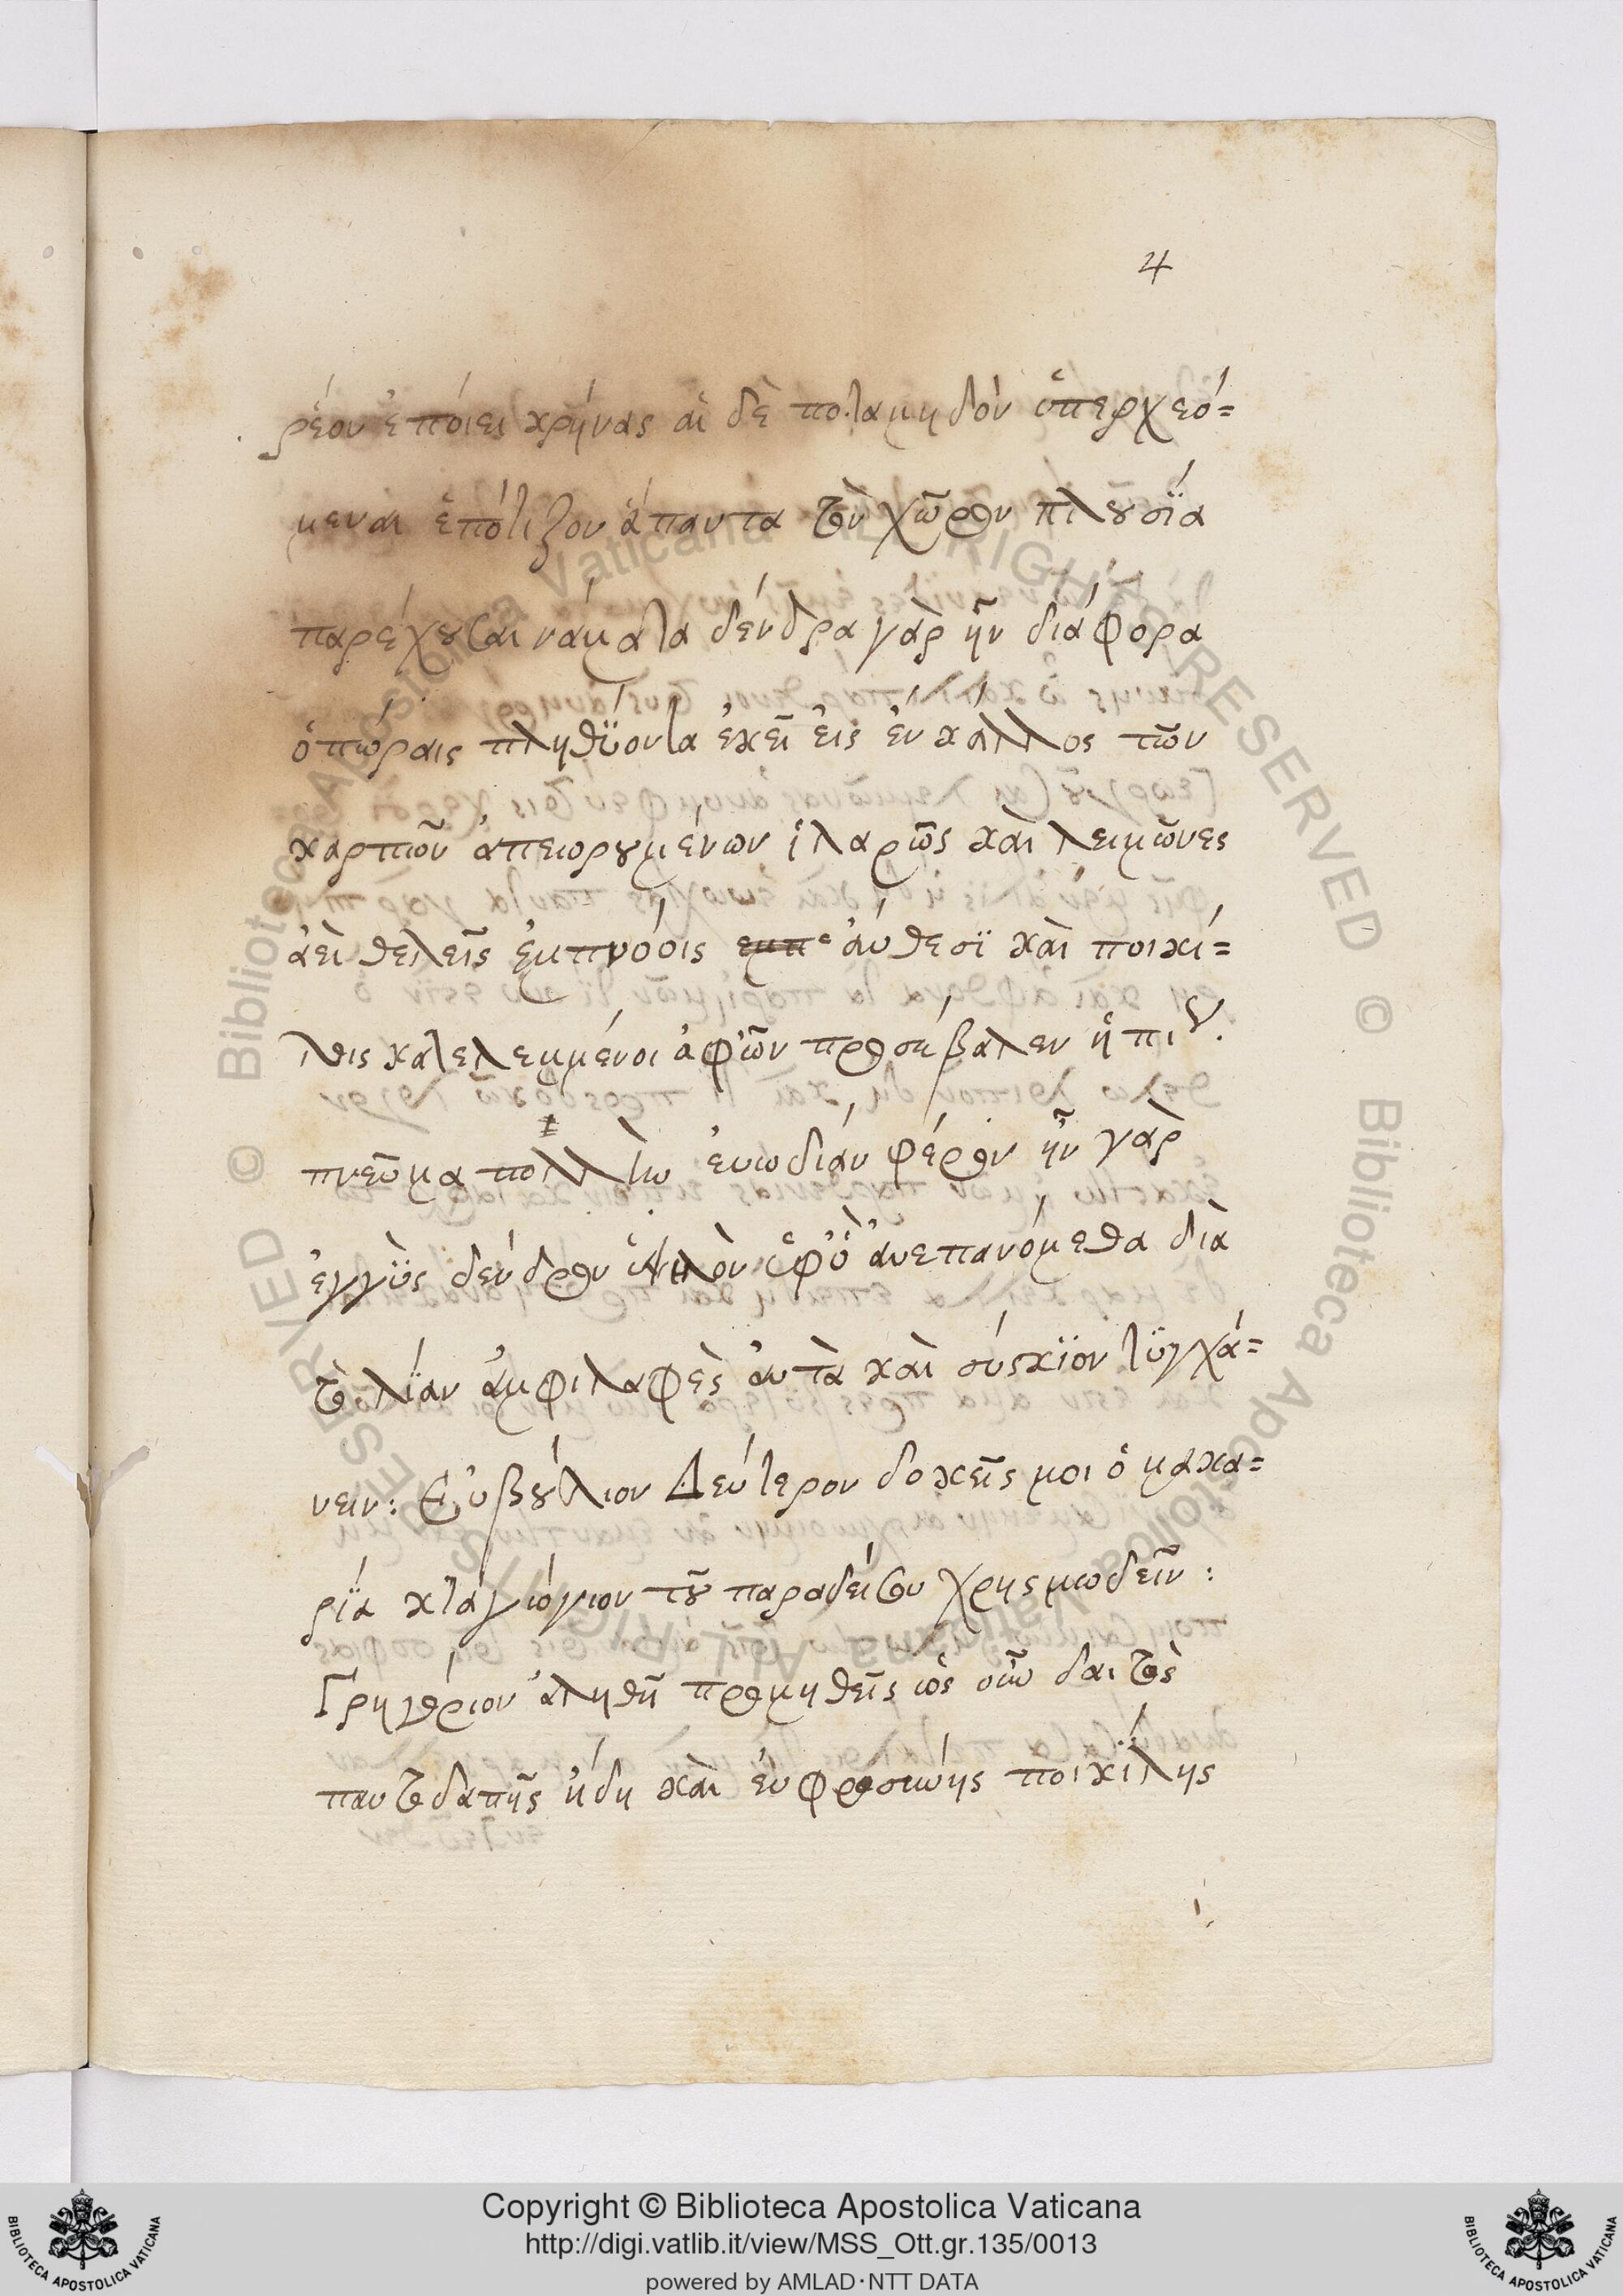 4
ῥέον ἐποίει κρήνας αἱ δὲ ποταμηδὸν ὑπερχεό=
μεναι ἐπότιζον ἅπαντα τὸν χῶρον πλουσία
παρέχουσαι νάματα δένδρα γὰρ ἦν διάφορα
ὀπώραις πληθύοντα ἐκεῖ εἰς ἓν κάλλος τῶν
καρπῶν ἀπειορουμένων ἱλαρῶς καὶ λειμῶνες
ἀεὶ θελεῖς ἐμπνόοις ἄνθεσϊ καὶ ποικί=
λοις κατελεμμένοι ἀφῶν προσέβαλεν
πνεῦμα πολλὴν ἐυωδίαν φέρον ἦν γὰρ
ἐγγὺς δένδρον ὑψηλὸν ὑφ' ὃ ἀνεπανόμεθα διὰ
τὸ λίαν ἀμφιλαφὲς ἀυτὰ καὶ σύσκϊον τϋγχά=
νειν: Ευβούλιον Δεύτερον δοκεῖς μοι ὁ μακα=
ρία καταγώγιον τοῦ παραδείσου χρησμωδεῖν:
Γρηγόριον ἀληθῆ προμηθεῖς ὡς οὖν δαιτὸς
παντοδαπῆς ἤδη καὶ ἐυφροσύνης ποικίλης
Copyright © Biblioteca Apostolica Vaticana
http://digi.vatlib.it/view/MSS_Ott.gr.135/0013
powered by AMLAD·NTT DATA